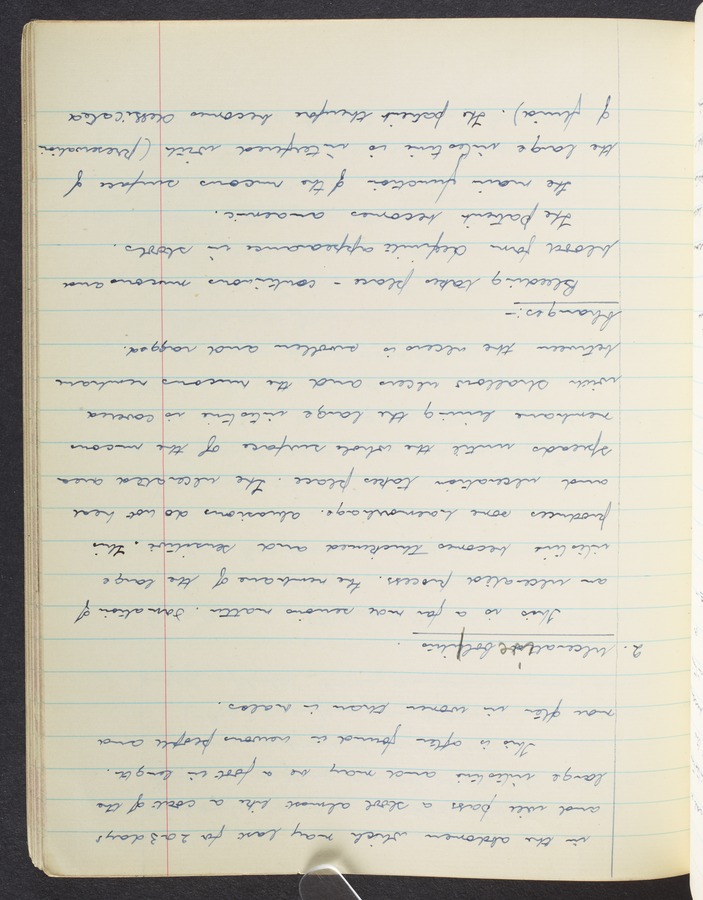 in the abdomen which may last for 2 or 3 days
and will pass a stool almost like a coat of the
large intestine and may be a foot in length.
This is often found in nervous people and
more often in women than in males.
2. Ulcerative Colitis.
This is a far more serious matter. Formation of
an ulcerated process. the membrane of the large
intestine becomes thickened and sensitive. This
produces some haemorrhage. abrasions do not heal
and ulceration takes place. The ulcerated area
spreads until the whole surface of the mucous
membrane lining the large intestine is covered
with shallow ulcers and the mucous membrane
between the ulcers is swollen and ragged.
Changes:-
Bleeding takes place - continuous mucous and
blood form definite appearance in stools.
The patient becomes anaemic.
the main function of the mucous surface of
the large intestine is interfered with (Preservation
of fluid). The patient therefore becomes dessicated